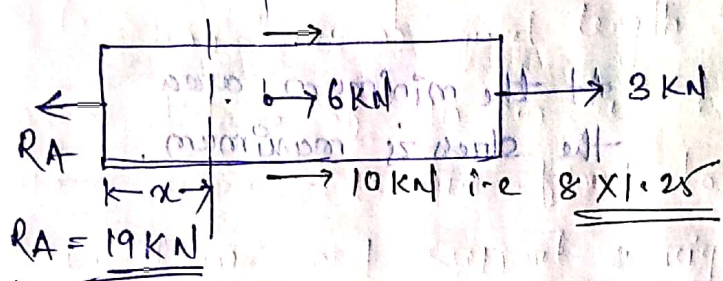 6 KN
3 KN
RA
x
10 KN i-e 8 X 1.25
RA = 19 KN